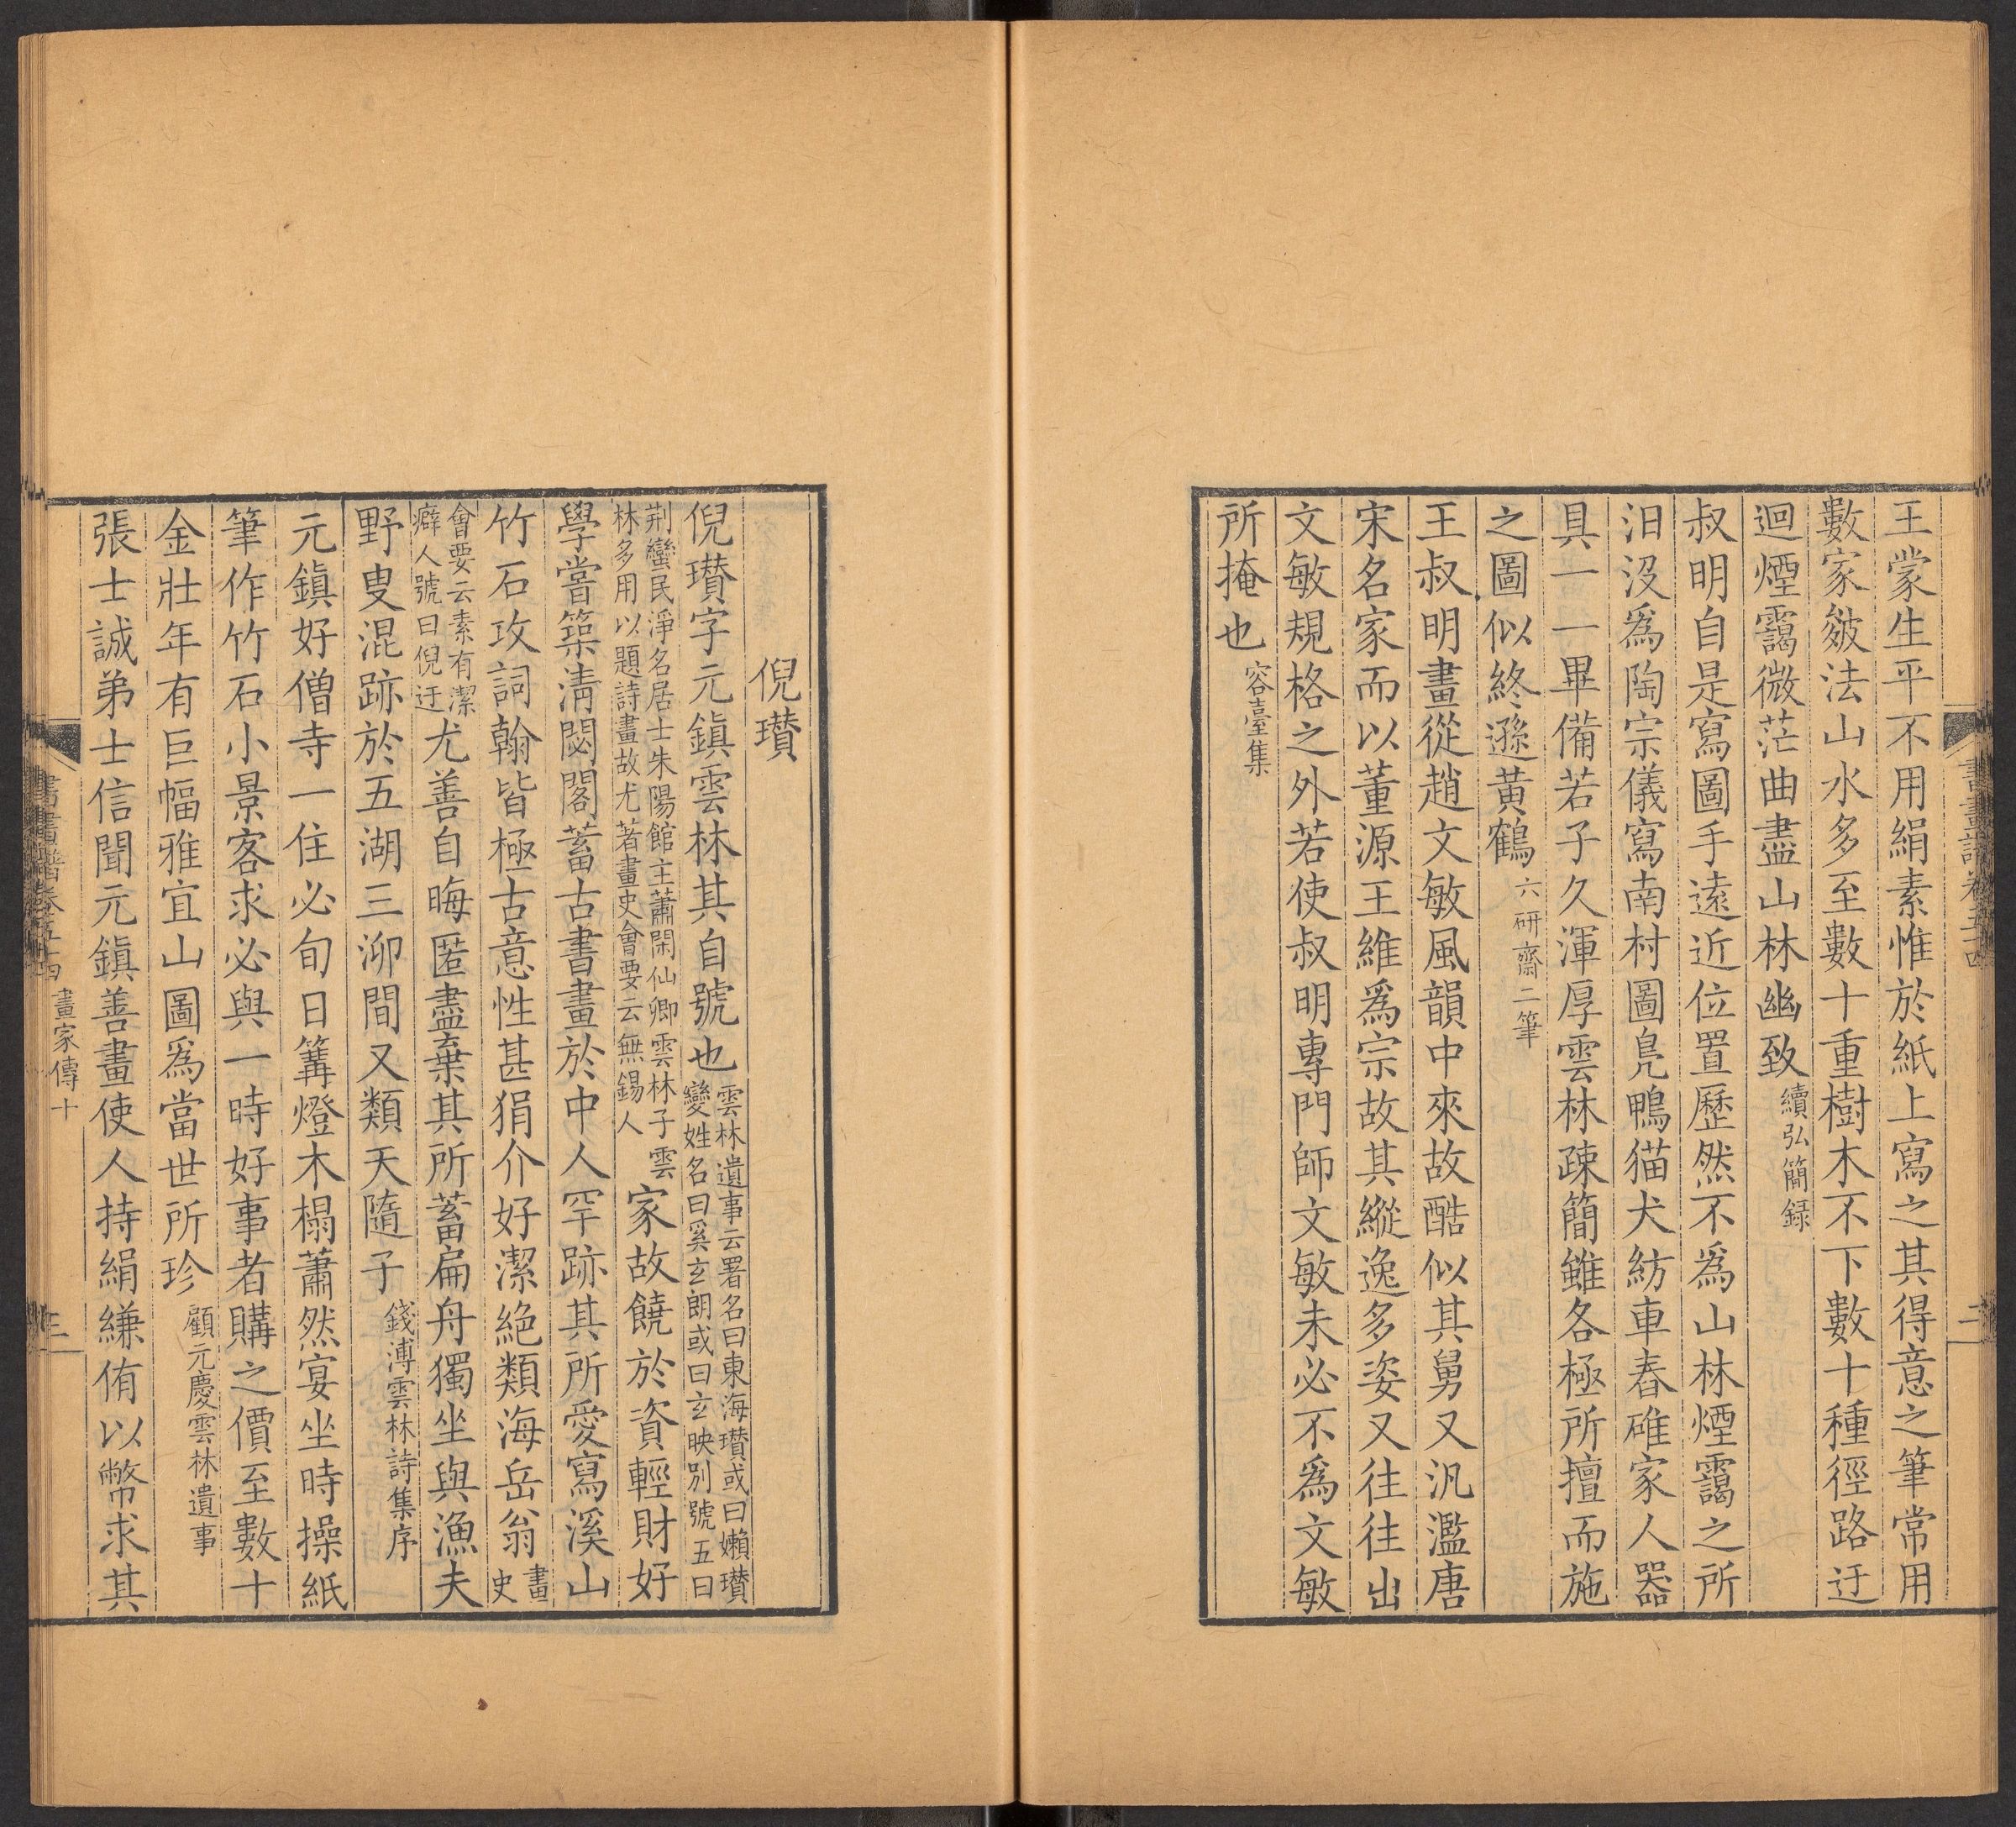 王蒙生平不用絹素惟於紙上寫之其得意之筆常用
數家皴法山水多至數十重樹木不下數十種徑路迂
迴煙靄微茫曲盡山林幽致續弘簡録
叔明自是寫圖手遠近位置歷然不爲山林煙靄之所
汨沒爲陶宗儀寫南村圖鳧鴨猫犬紡車舂碓家人器
具一一畢備若子久渾厚雲林疎簡雖各極所擅而施
之圖似終遜黃鶴六研齋二筆
王叔明畫從趙文敏風韻中來故酷似其舅又汎濫唐
宋名家而以董源王維爲宗故其縱逸多姿又往往出
文敏規格之外若使叔明專門師文敏未必不爲文敏
所掩也容臺集
書畫譜卷五十四
二
倪瓚
倪瓚字元鎭雲林其自號也雲林遺事云署名曰東海瓚或曰嬾瓚
變姓名曰奚玄朗或曰玄映別號五曰
荆蠻民淨名居士朱陽館主蕭閑仙卿雲林子雲
林多用以題詩畫故尤著畫史會要云無錫人
家故饒於資輕財好
學嘗築淸閟閣蓄古書畫於中人罕跡其所愛寫溪山
竹石攻詞翰皆極古意性甚狷介好潔絶類海岳翁畫史
會要云素有潔
癖人號曰倪迂
尤善自晦匿盡棄其所蓄扁舟獨坐與漁夫
野叟混跡於五湖三泖間又類天隨子錢溥雲林詩集序
元鎭好僧寺一住必旬日篝燈木榻蕭然宴坐時操紙
筆作竹石小景客求必與一時好事者購之價至數十
金壯年有巨幅雅宜山圖爲當世所珍顧元慶雲林遺事
張士誠弟士信聞元鎭善畫使人持絹縑侑以幣求其
書畫譜卷五十四
畫家傳十
三